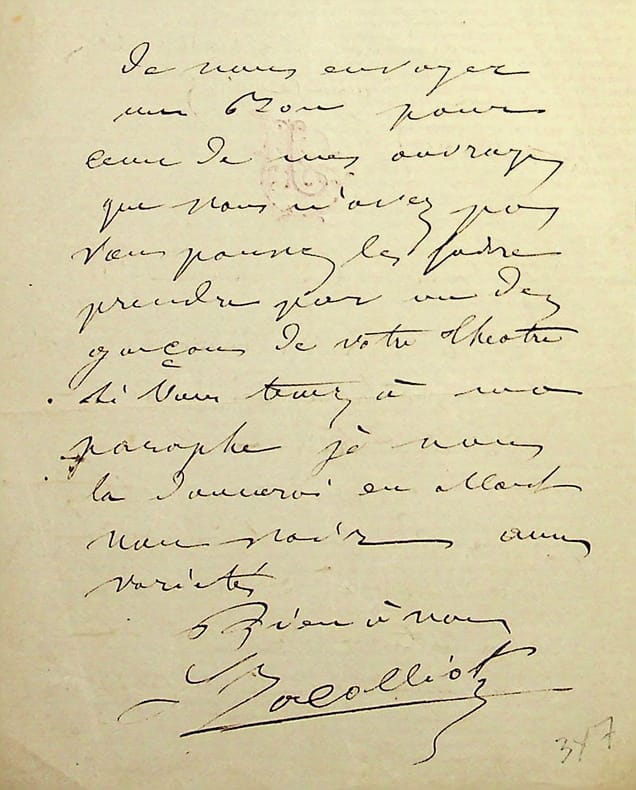 de vous envoyer
un Bon pour
ceux de mes ouvrages
que vous n'avez pas
Vous pouvez les faire
prendre par un des
garçons de votre theatre
si Vous tenez à ma
paraphe je vous
la donnerai en allant
vous voir aux
varietés
Bien à vous
Jacolliot
347